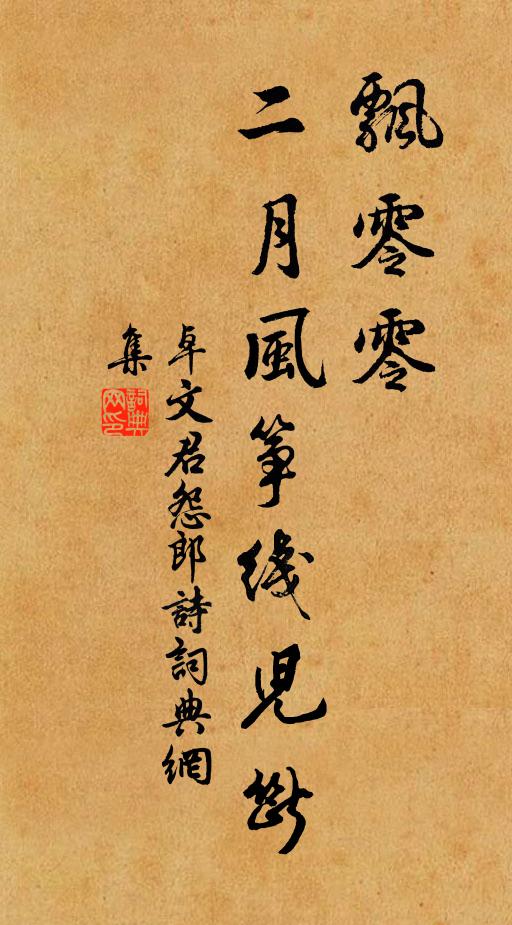 飄零零
二月風筝綫兒斷
卓文君怨郎詩詞典網
集
詞典网印